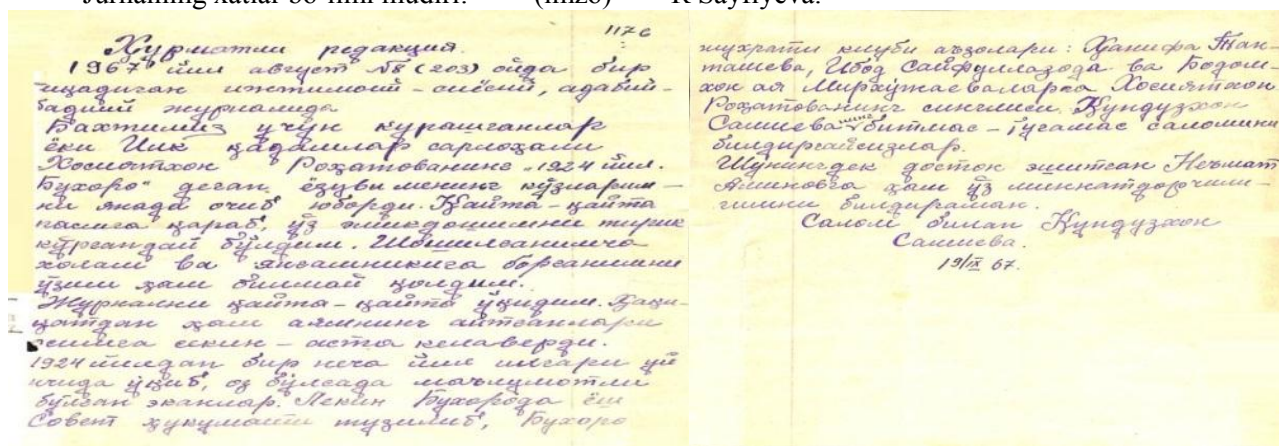 Jurnalning xatlar bo'limi mudiri: (imzo) R Sayfiyeva.
1176
Ҳурматли редакция.
1967 йил август №8 (203) ойда бир
чиқадиган ижтимоий-сиёсий, адабий-
бадиий журналида
Бахтимиз учун курашганлар
ёки Илк қадамлар сарлохали
Хосиятхон Розатованинг „1924 йил.
Бухоро" деган ёзуви менинг кўзларим-
ни янада очиб юборди. Қайта-қайта
расмга қараб, ўз эгачимни тирик
кўргандай бўлдим. Шошилганимча
холам ва янгамникига борганимни
ўзим ҳам билмай қолдим.
Журнални қайта-қайта ўқидим. Ҳақи-
қатдан ҳам аямнинг айтганлари
эсимга секин-аста келаверди.
1924 йилдан бир неча йил илгари уй
ичида ўқиб, оз бўлсада маълумотли
бўлган эканлар. Лекин Бухорода ёш
Совет ҳукумати тузилиб, Бухоро
шуҳрати клуби аъзолари: Ҳанифа Тан-
ташева, Ибод Сайфуллазода ва Бодом-
хон ая Мирхўжаеваларга Хосиятхон
Розатованинг синглиси Қундузхон
Салиеванинг битмас-туганмас саломини
билдирсангизлар.
Шунингдек достон эшитган Неъмат
Аминовга ҳам ўз миннатдорчили-
гимни билдираман.
Салом билан Қундузхон
Салиева.
19/IX 67.